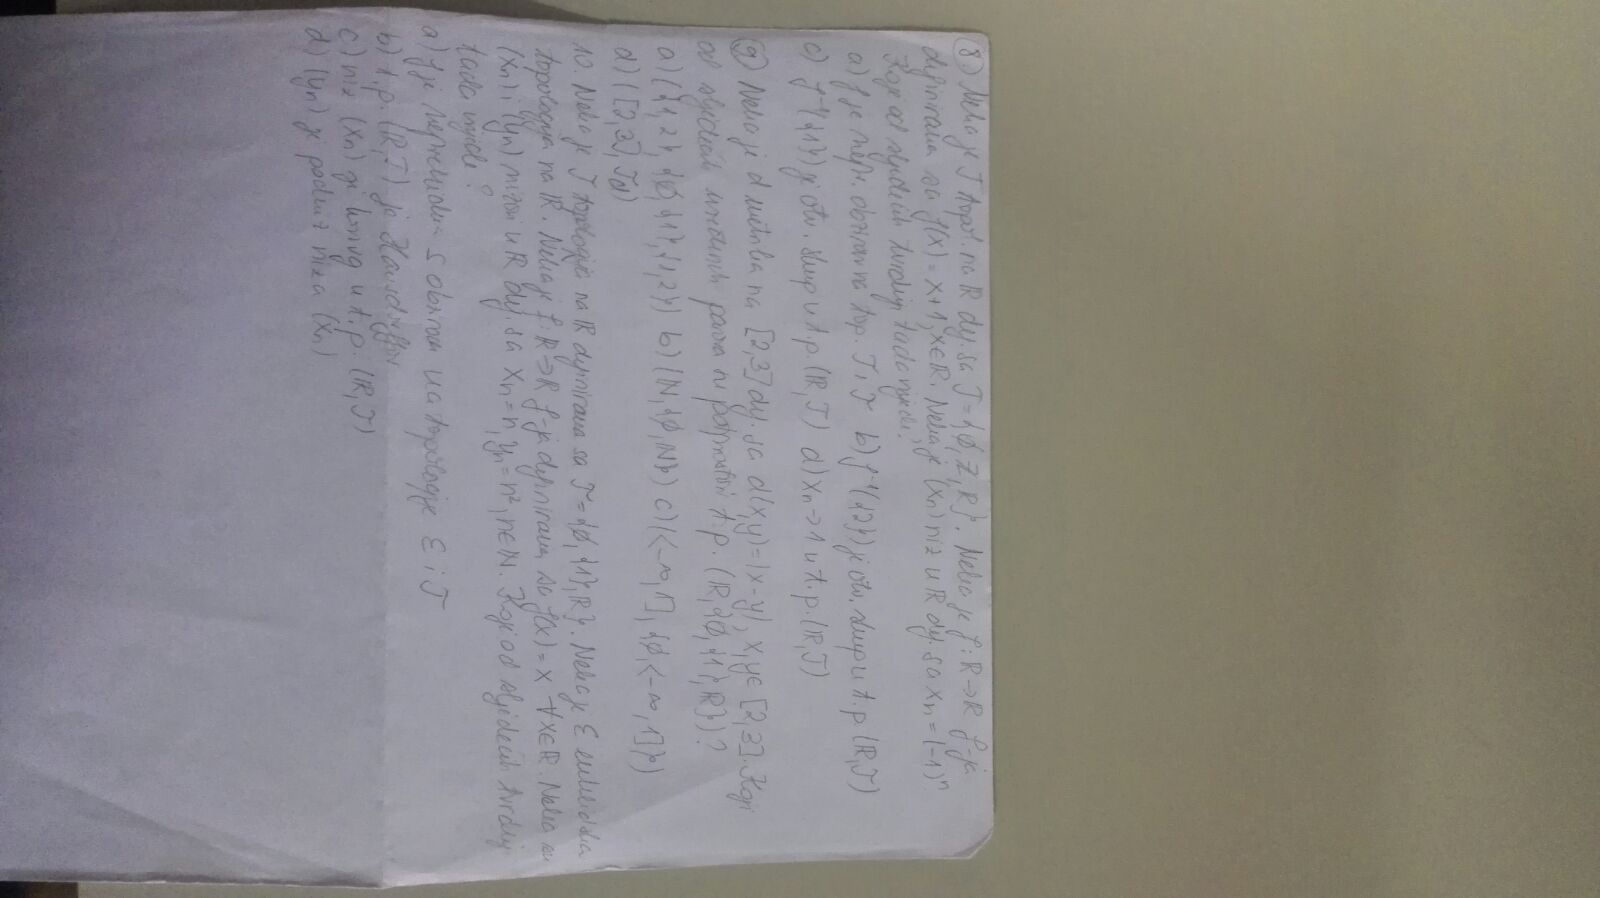 8) Neka je T topol. na R def. sa T = {ø, Z, R}. Neka je f: R → R f-ja
definirana sa f(x) = x+1, x∈R. Neka je (xn) niz u R def. sa xn = (-1)^n.
Koje od sljedećih tvrdnji tada vrijedi?
a) f je nepr. obzirom na top. T i T b) f⁻¹({2}) je otv. skup u t.p. (R,T)
c) f⁻¹({1}) je otv. skup u t.p. (R,T) d) xn → 1 u t.p. (R,T)
9) Neka je d metrika na [2,3] def. sa d(x,y) = |x-y|, x,y∈[2,3]. Koji
od sljedećih uređenih parova su potprostori t.p. (R, {ø, {1}, R})?
a) ({1,2}, {ø, {1}, {1,2}}) b) (N, {ø, N}) c) (<-∞, 1], {ø, <-∞, 1]})
d) ([2,3], Td)
10. Neka je T topologija na R definirana sa T = {ø, {1}, R}. Neka je Ɛ euklidska
topologija na R. Neka je f: R → R f-ja definirana sa f(x) = x ∀x∈R. Neka su
(xn), (yn) nizovi u R def. sa xn = n, yn = n², n∈N. Koje od sljedećih tvrdnji
tada vrijede?
a) f je neprekidna s obzirom na topologije Ɛ i T
b) t.p. (R,T) je Hausdorffov
c) niz (xn) je konvg u t.p. (R,T)
d) (yn) je podniz niza (xn)